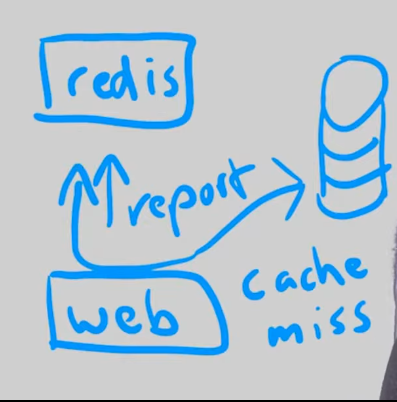 redis
report
web
cache
miss